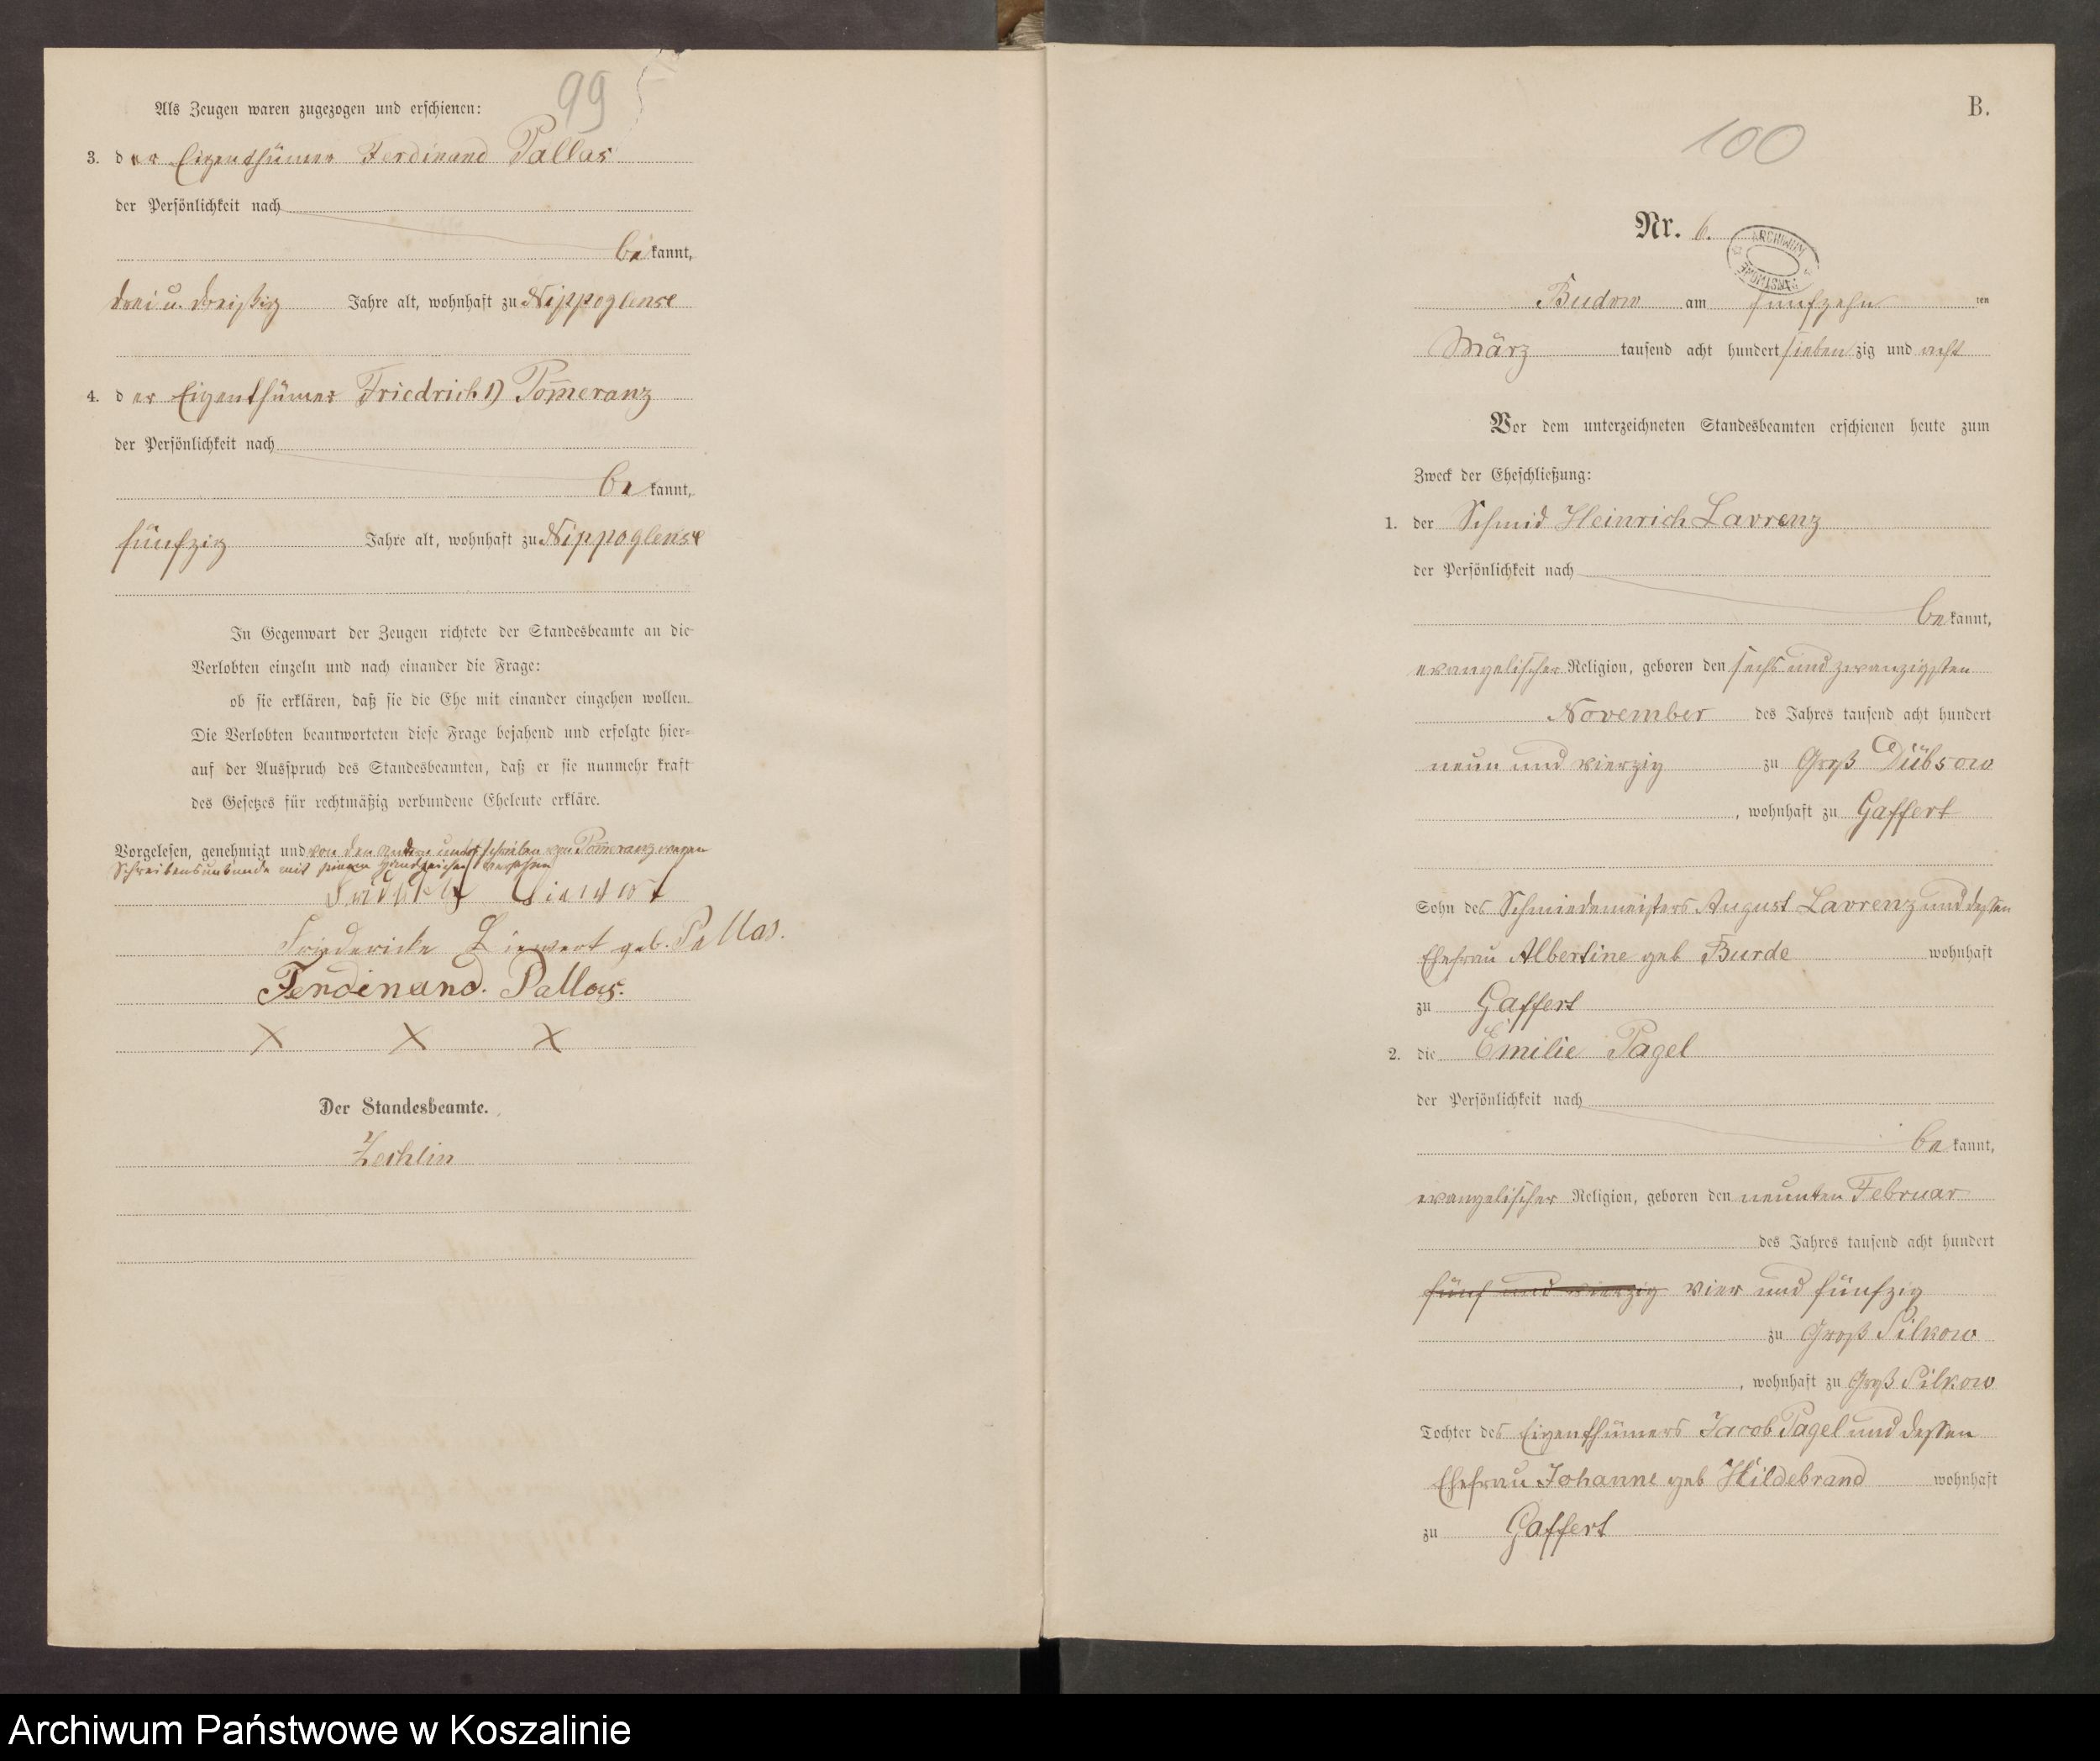 99
Als Zeugen waren zugezogen und erschienen:
3. der Eigenthümer Ferdinand Pallas
der Persönlichkeit nach
bekannt,
drei u. dreißig Jahre alt, wohnhaft zu Nippoglense
4. der Eigenthümer Friedrich 1) Pom̅eranz
der Persönlichkeit nach
bekannt,
fünfzig Jahre alt, wohnhaft zu Nippoglense
In Gegenwart der Zeugen richtete der Standesbeamte an die
Verlobten einzeln und nach einander die Frage:
ob sie erklären, daß sie die Ehe mit einander eingehen wollen.
Die Verlobten beantworteten diese Frage bejahend und erfolgte hier=
auf der Ausspruch des Standesbeamten, daß er sie nunmehr kraft
des Gesetzes für rechtmäßig verbundene Eheleute erkläre.
Vorgelesen, genehmigt und von den andern unterschrieben von Pom̅eranz wegen
Schreibensunkunde mit seinem Handzeichen versehen
Friederike Liewert geb. Pallas.
Ferdinand. Pallas.
X X X
Der Standesbeamte.
Zechlin
B.
100
Nr. 6.
ARCHIWUM
Budow am fünfzehn ten
März tausend acht hundert siebenzig und acht
Vor dem unterzeichneten Standesbeamten erschienen heute zum
Zweck der Eheschließung:
1. der Schmid Heinrich Lavrenz
der Persönlichkeit nach
bekannt,
evangelischer Religion, geboren den sechs und zwanzigsten
November des Jahres tausend acht hundert
neun und vierzig zu Groß Dübsow
, wohnhaft zu Gaffert
Sohn des Schmiedemeisters August Lavrenz und dessen
Ehefrau Albertine geb Burde wohnhaft
zu Gaffert
2. die Emilie Pagel
der Persönlichkeit nach
bekannt,
evangelischer Religion, geboren den neunten Februar
des Jahres tausend acht hundert
fünf und vierzig vier und fünfzig
zu Groß Silkow
, wohnhaft zu Groß Silkow
Tochter des Eigenthümers Jacob Pagel und dessen
Ehefrau Johanne geb Hildebrand wohnhaft
zu Gaffert
Archiwum Państwowe w Koszalinie